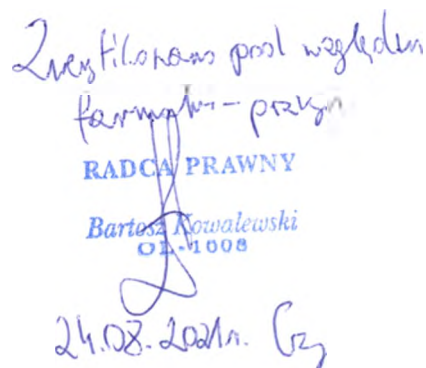 Zweryfikowano pod względem
formalno-prawnym
RADCA PRAWNY
Bartosz Kowalewski
OL-1008
24.08.2021r.